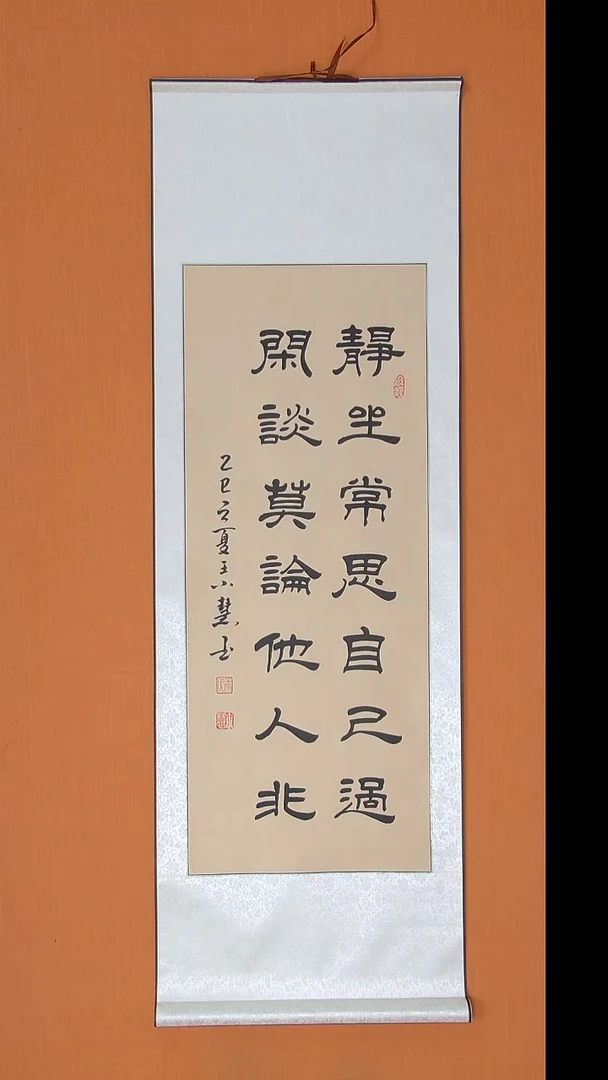 靜坐常思自己過
閑談莫論他人非
乙巳立夏王小慧书